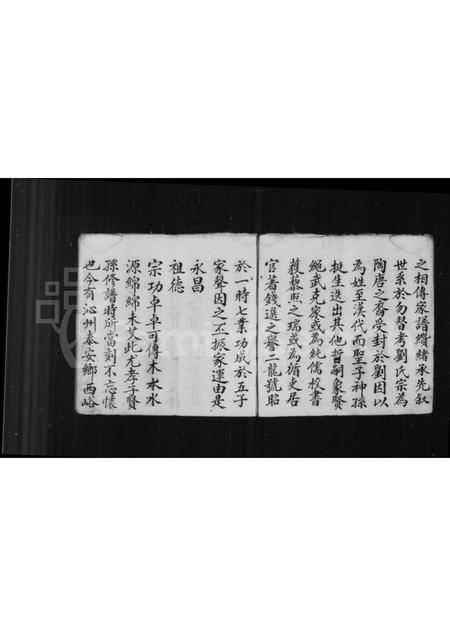 之相傳家譜纘緒承先叙
世系於勿替考劉氏宗為
陶唐之裔受封於劉因以
為姓至漢代而聖子神孫
挺生迭出其他哲嗣象賢
繩武克家或為純儒校書
獲藜照之瑞或為循吏居
官著錢選之譽二龍號昭
於一時七業功成於五子
家聲因之丕振家運由是
永昌
祖德
宗功卓卓可傳木本水
源綿綿未艾此尤孝子賢
孫修譜時所當刻不忘懷
也今有沁州秦安鄉西峪